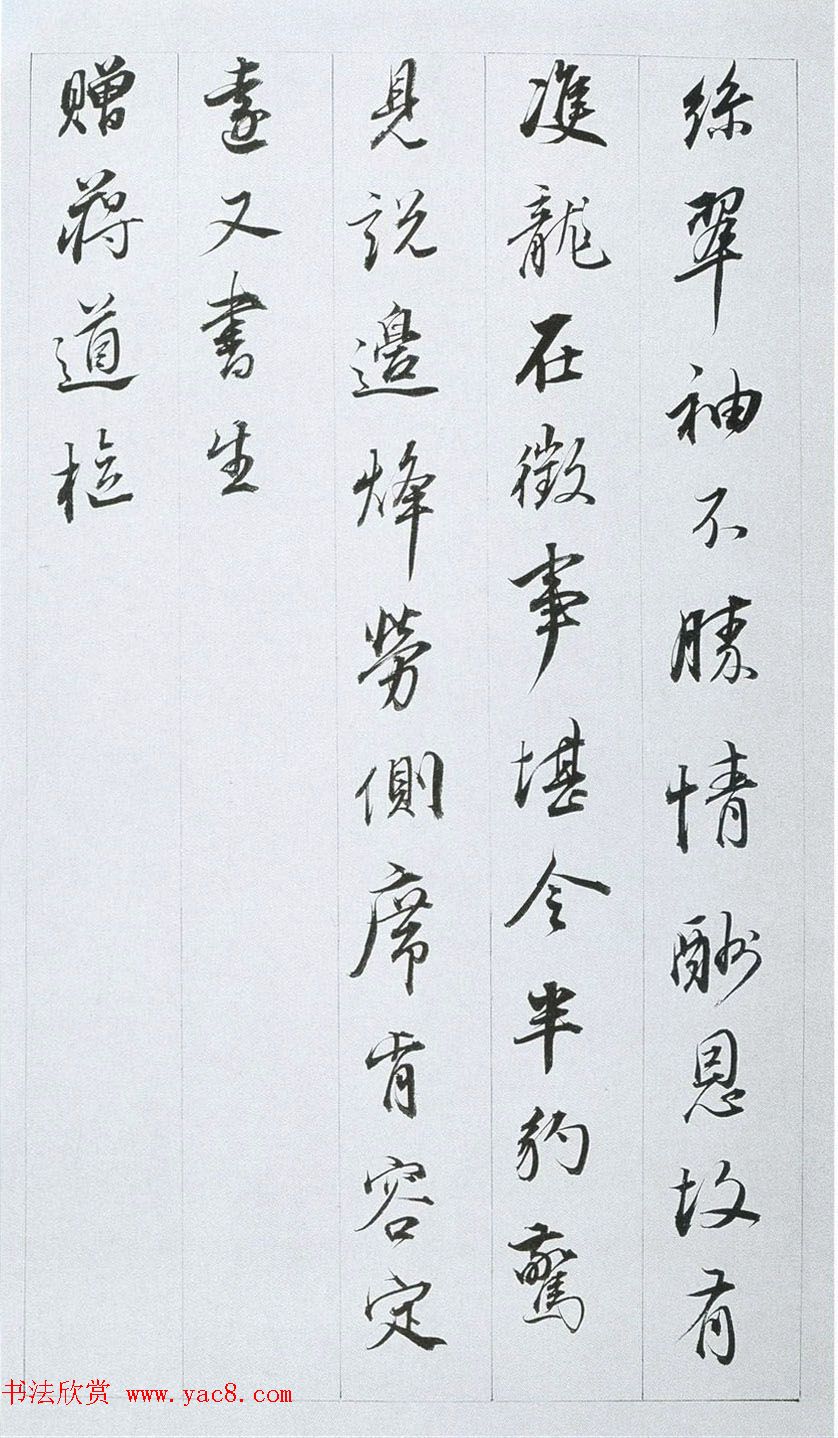 絲翠袖不勝情酬恩故有
雙龍在徵事堪令半豹驚
見說邊烽勞側席肯容定
遠又書生
贈蔣道樞
书法欣赏 www.yac8.com